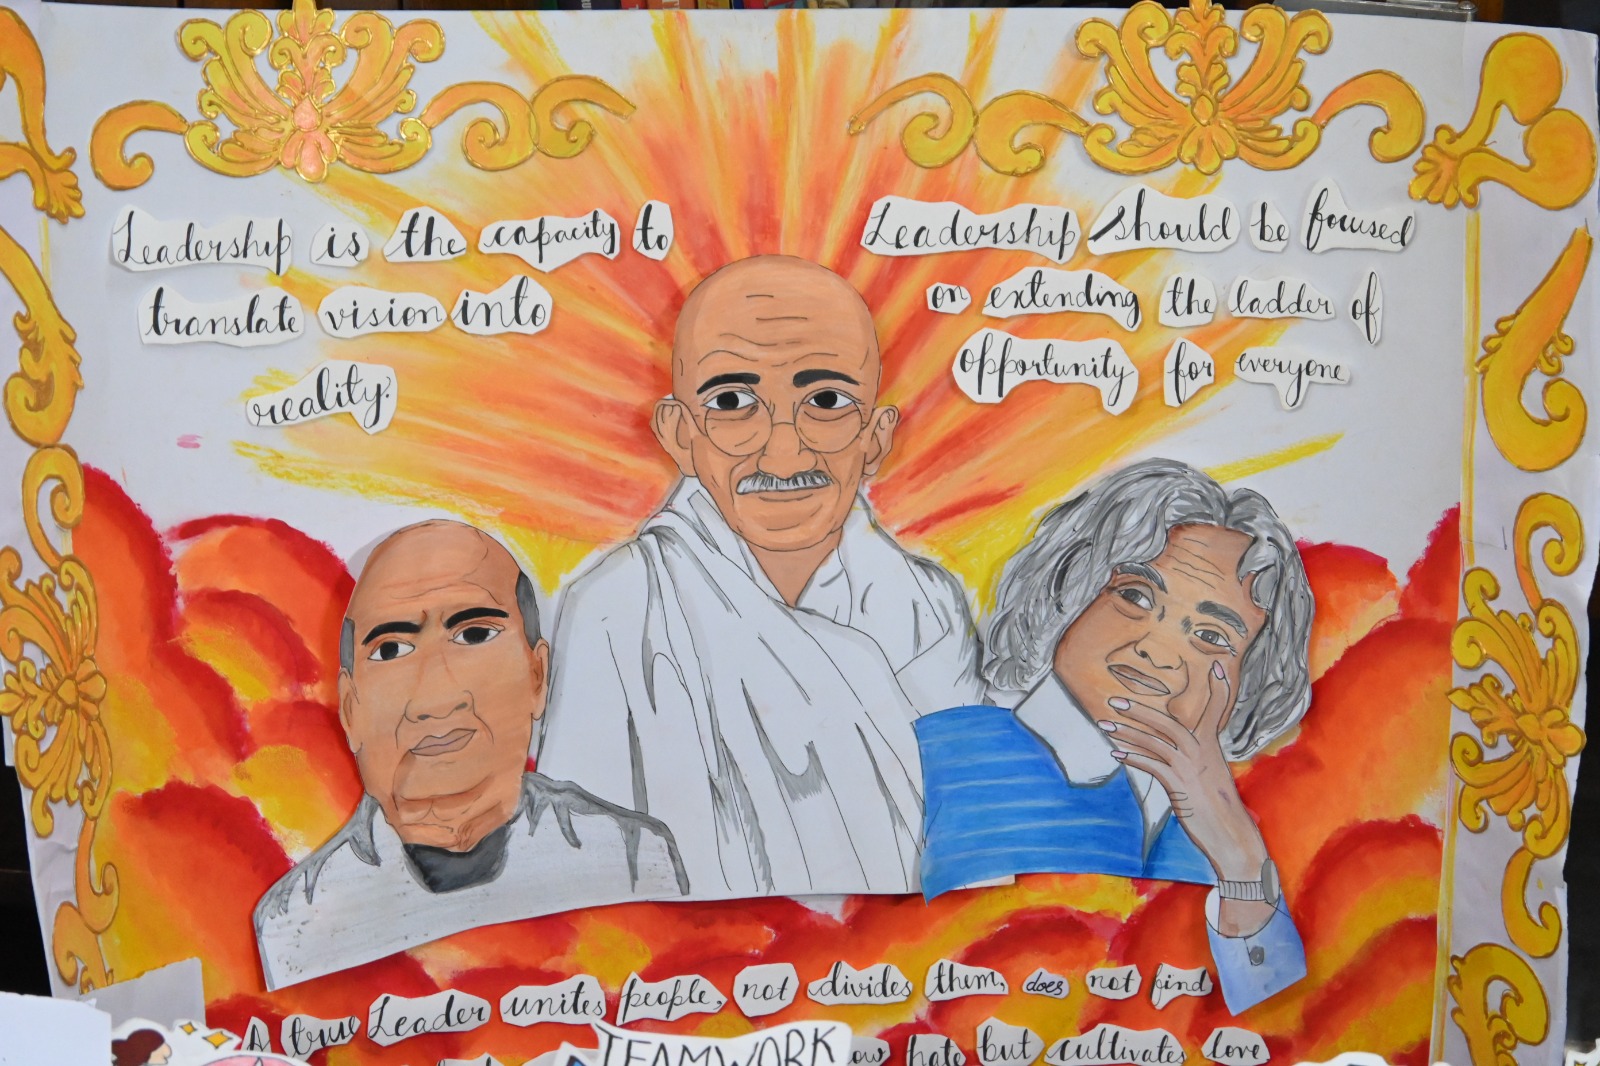 Leadership is the capacity to
translate vision into
reality.
Leadership should be focused
on extending the ladder of
opportunity for everyone
A true Leader unites people, not divides them, does not find
TEAMWORK
hate but cultivates love